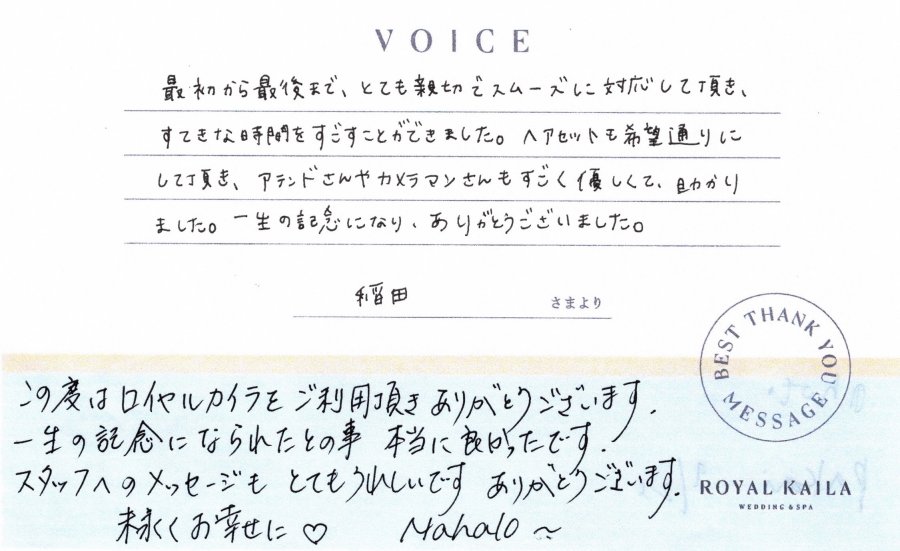 VOICE
最初から最後まで、とても親切でスムーズに対応して頂き、
すてきな時間をすごすことができました。ヘアセットも希望通りに
して頂き、アテンドさんやカメラマンさんもすごく優しくて、助かり
ました。一生の記念になり、ありがとうございました。
稲田 さまより
BEST THANK YOU MESSAGE
この度はロイヤルカイラをご利用頂きありがとうございます.
一生の記念になられたとの事 本当に良かったです.
スタッフへのメッセージも とてもうれしいです ありがとうございます.
末永くお幸せに♡ Mahalo~
ROYAL KAILA
WEDDING & SPA